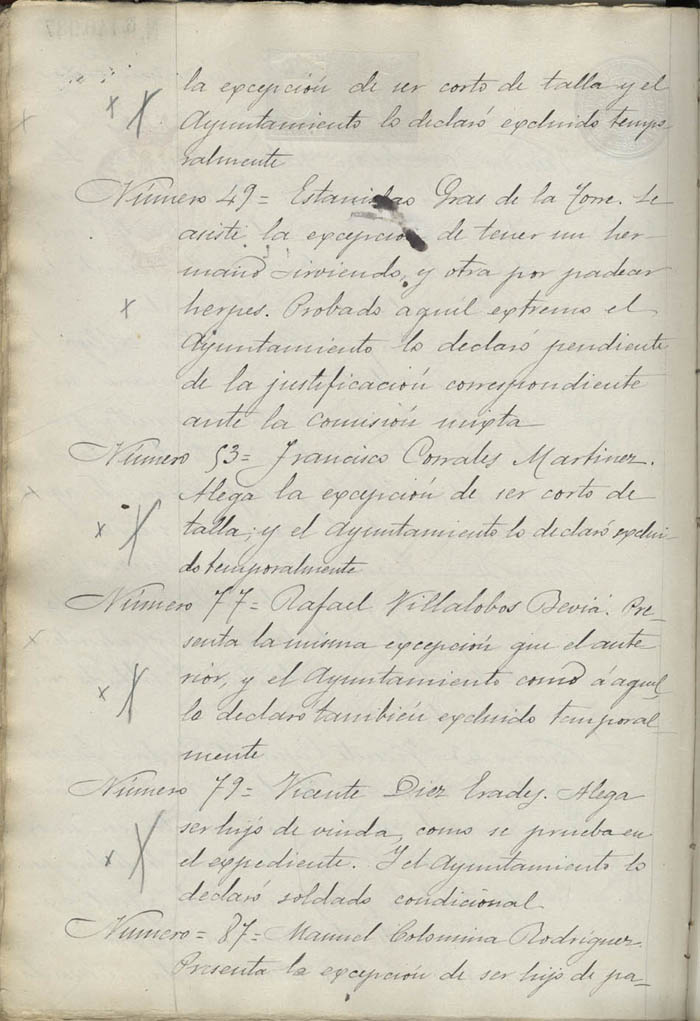 la excepción de ser corto de talla y el
Ayuntamiento lo declaró excluido tempo-
ralmente
Número 49= Estanislao Gras de la Torre. Le
asiste la excepción de tener un her-
mano sirviendo, y otra por padecer
herpes. Probado aquél extremo el
Ayuntamiento lo declaró pendiente
de la justificación correspondiente
ante la Comisión mixta
Número 53= Francisco Corrales Martinez.
Alega la excepción de ser corto de
talla; y el Ayuntamiento lo declaró exclui-
do temporalmente
Número 77= Rafael Villalobos Beviá. Pre-
senta la misma excepción que el ante
rior, y el Ayuntamiento como á aquel,
lo declaró también excluido temporal
mente
Número 79= Vicente Diez Erades. Alega
ser hijo de viuda, como se prueba en
el expediente. Y el Ayuntamiento lo
declaró soldado condicional
Número= 87= Manuel Colomina Rodríguez.
Presenta la excepción de ser hijo de pa-